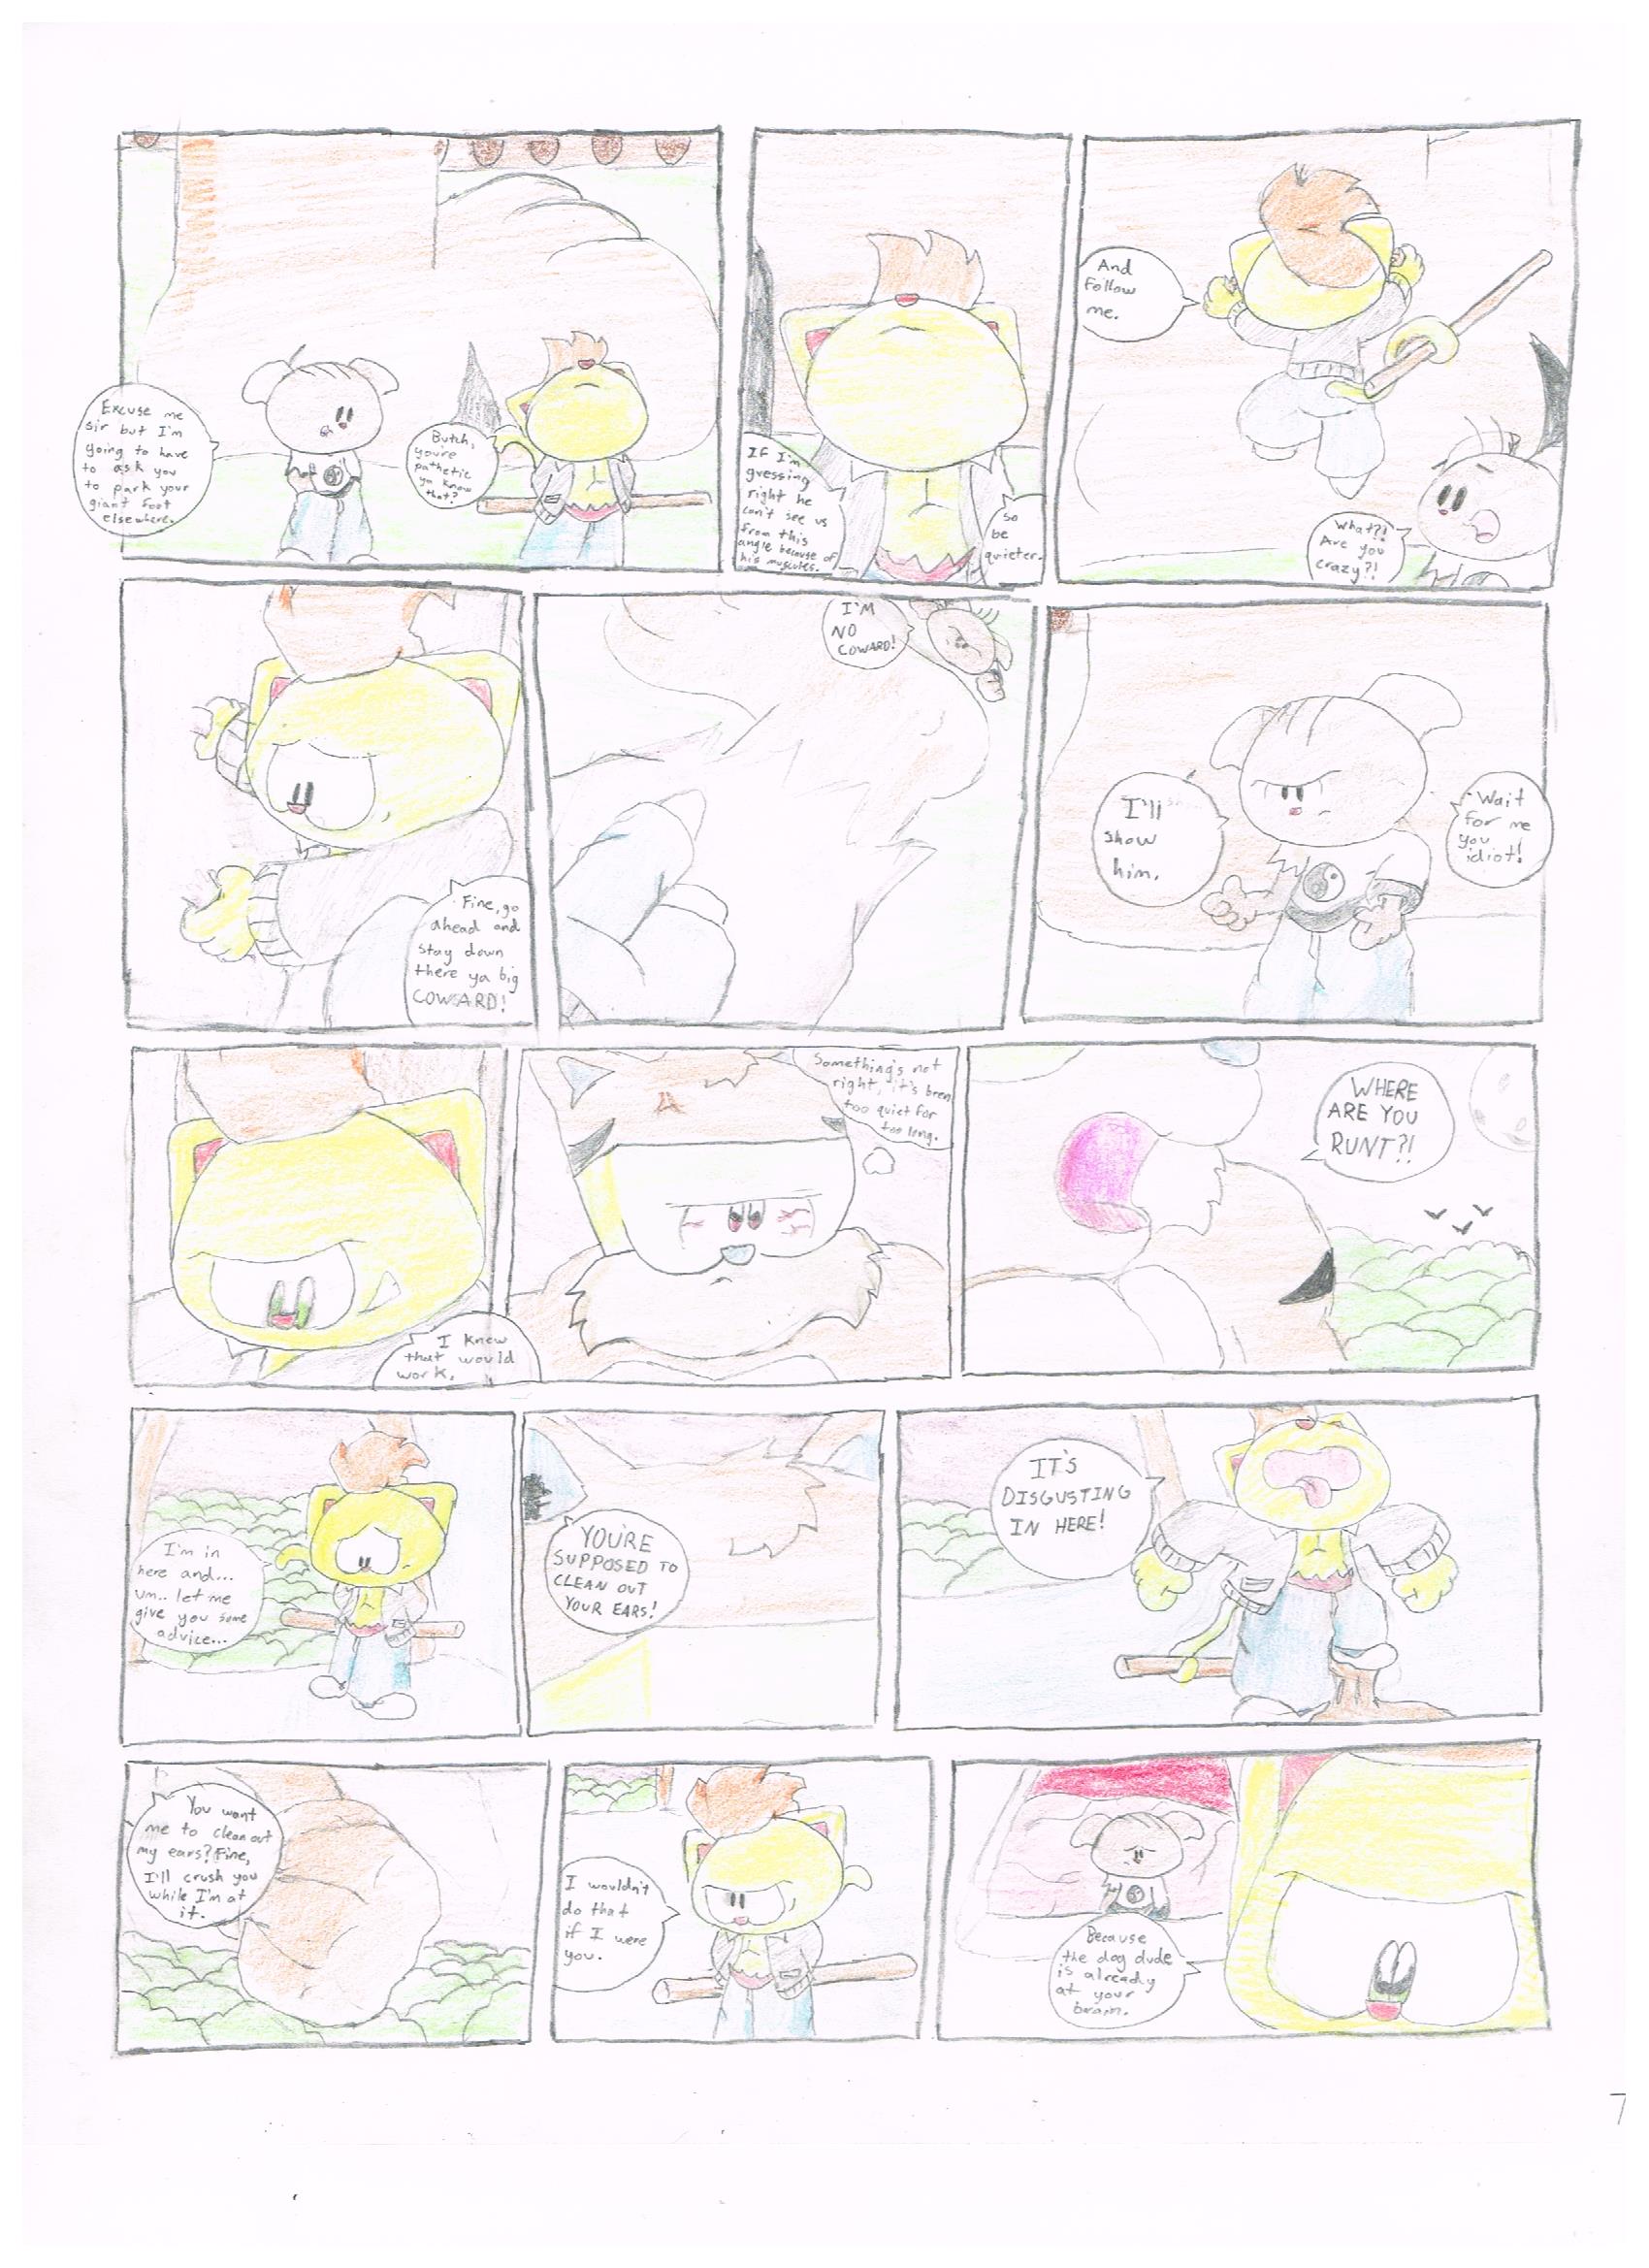 Excuse me
sir but I'm
going to have
to ask you
to park your
giant foot
elsewhere.
Butch,
you're
pathetic
ya know
that?
If I'm
guessing
right he
can't see us
from this
angle because of
his muscules.
so
be
quieter.
And
follow
me.
What?!
Are you
crazy?!
Fine, go
ahead and
stay down
there ya big
COWARD!
I'M
NO
COWARD!
I'll
show
him.
Wait
for me
you
idiot!
I knew
that would
work.
Something's not
right, it's been
too quiet for
too long.
WHERE
ARE YOU
RUNT?!
I'm in
here and...
um.. let me
give you some
advice...
YOU'RE
SUPPOSED TO
CLEAN OUT
YOUR EARS!
IT'S
DISGUSTING
IN HERE!
You want
me to clean out
my ears? Fine,
I'll crush you
while I'm at
it.
I wouldn't
do that
if I were
you.
Because
the dog dude
is already
at your
brain.
7